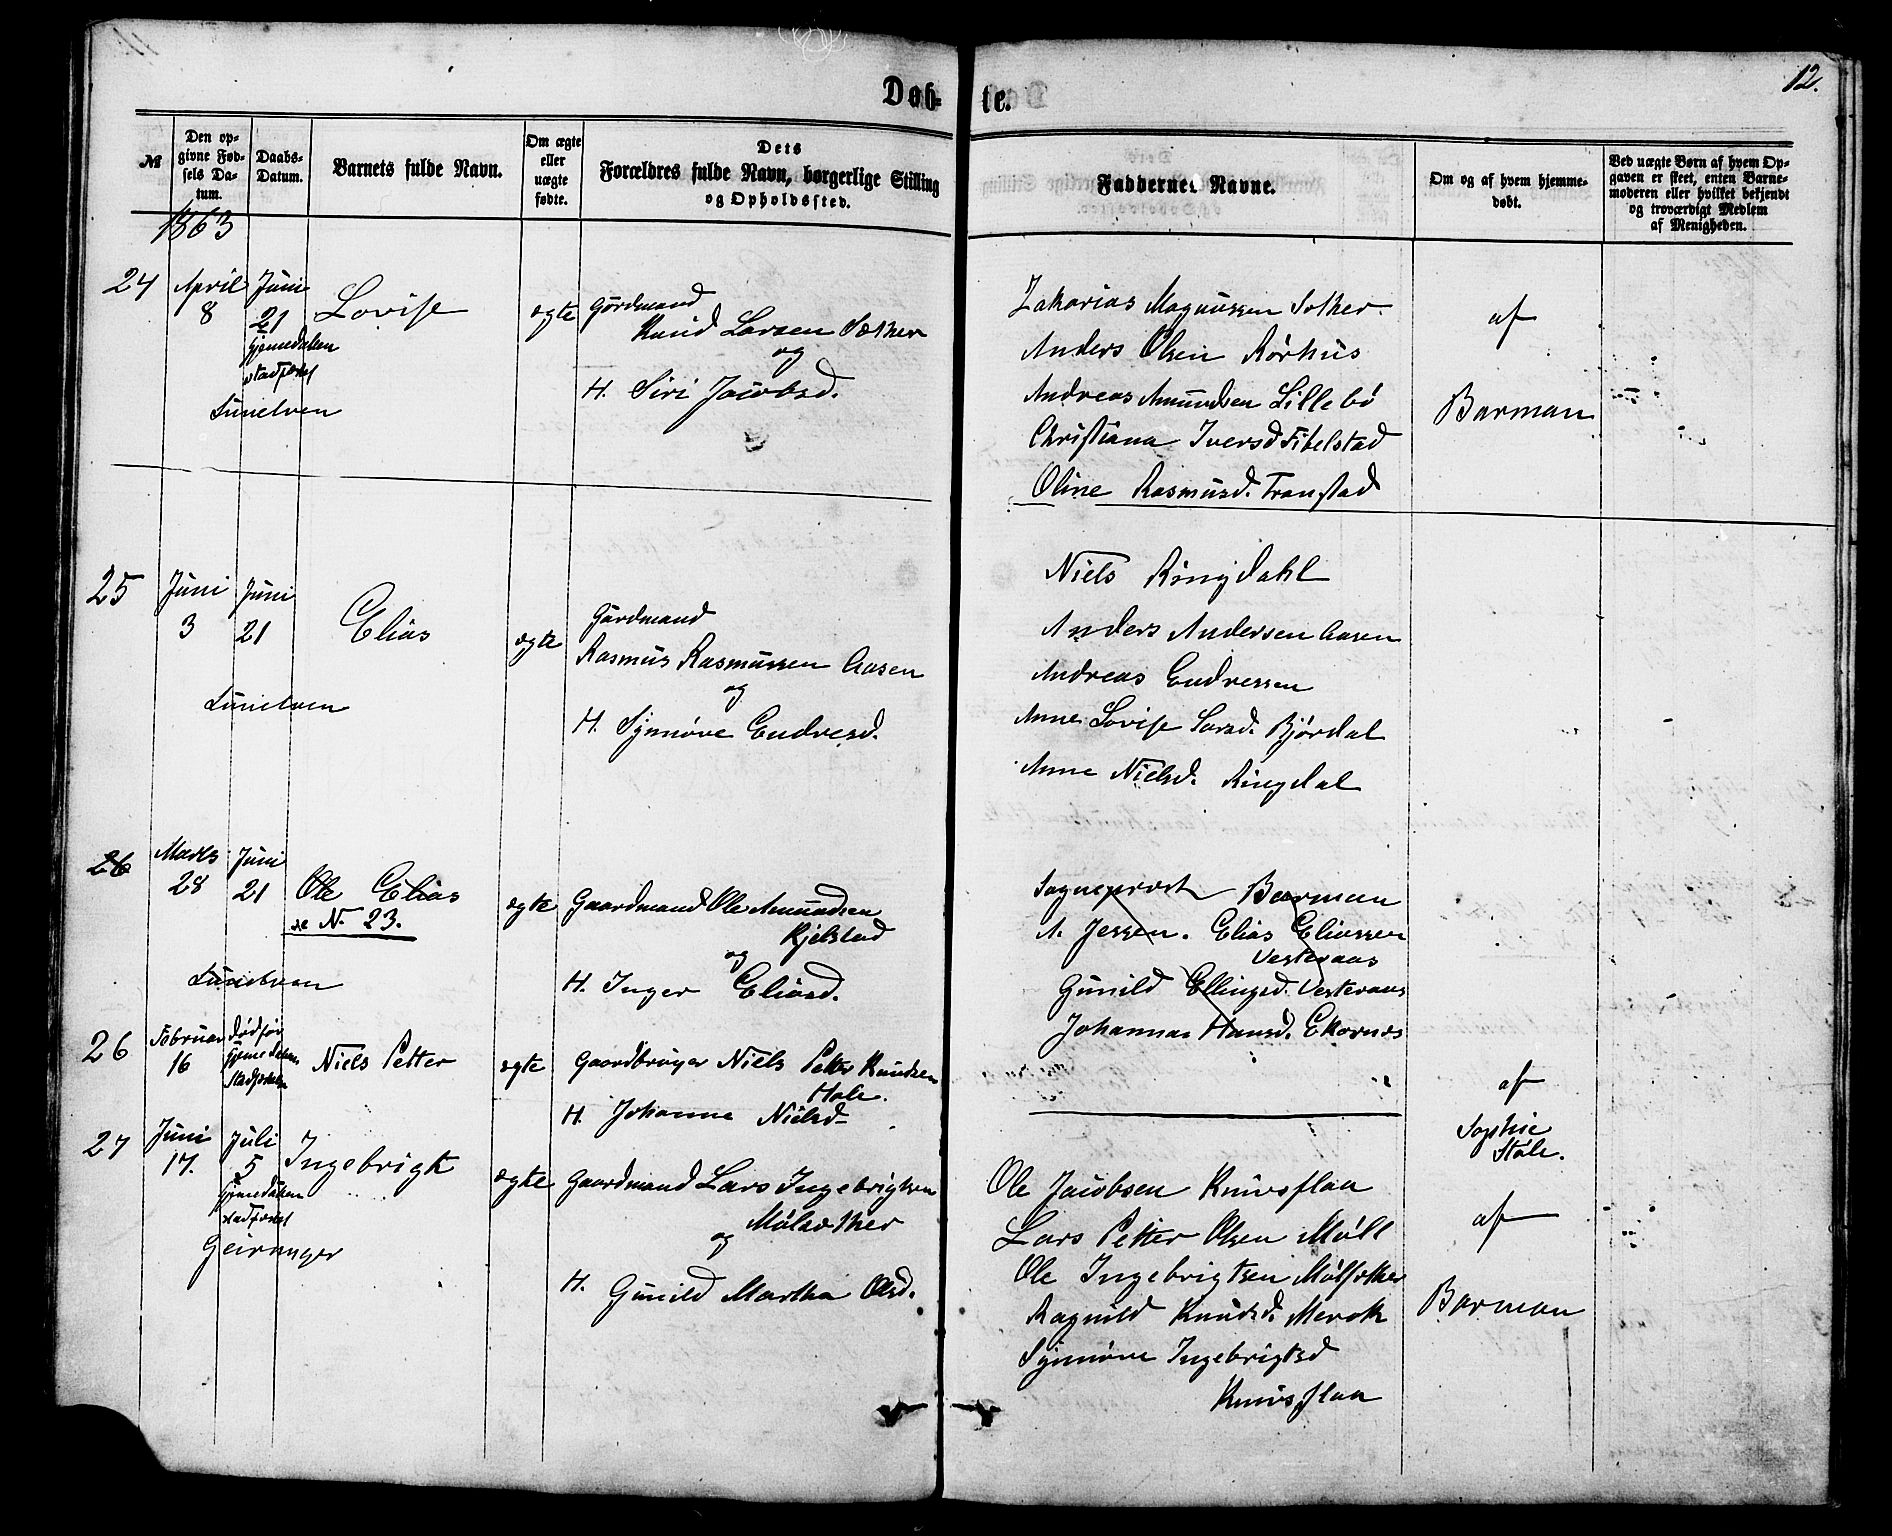 Døb-
te.
12.
№
Den op-
givne Fød-
sels Da-
tum.
Daabs-
Datum.
Barnets fulde Navn.
Om ægte
eller
uægte
fødte.
Dets
Forældres fulde Navn, borgerlige Stilling
og Opholdssted.
Faddernes Navne.
Om og af hvem hjemme-
døbt.
Ved uægte Børn af hvem Op-
gaven er skeet, enten Barne-
moderen eller hvilket bekjendt
og troværdigt Medlem
af Menigheden.
1863
24
April
8
Juni
21
hjemedøben
stadfæst
Sunelven
Lovise
ægte
Gårdmand
Knud Larsen Sæther
og
H. Siri Jacobsd.
Zakarias Magnussen Sæther.
Anders Olsen Rørhus
Andreas Amundsen Lillebø
Christiana Iversd Fibelstad
Oline Rasmusd. Tronstad
af
Barman
25
Juni
3
Juni
21
Sunelven
Elias
ægte
Gårdmand
Rasmus Rasmussen Aasen
og
H. Synnøve Endresd.
Niels Ringdahl
Anders Andersen Aasen
Andreas Endressen
Anne Lovise Larsd. Bjørdal
Anne Nielsd. Ringdal
26
Marts
28
Juni
21
Sunelven
Ole Elias
se N. 23.
ægte
Gaardmand Ole Amundsen
Kjelstad
og
H. Inger Eliasd.
Sogneprest Barman
A. Jessen. Elias Eliassen
Vesteraas
Gunild Ellingsd. Vesteraas
Johanna Hansd. Ekornæs
26
Februar
16
dødfør
hjemedøbens
Stadfæstelse
Niels Petter
ægte
Gaardbruger Niels Petter Knudsen
Hole.
H. Johanne Nielsd
af
Sophie
Hole.
27
Juni
17.
Juli
5
hjemedøben
stadfæst
Geiranger
Ingebrigt
ægte
Gaardmand Lars Ingebrigtsen
Mølsæther
og
H. Gunild Martha Olsd.
Ole Jacobsen Knivsflaa
Lars Petter Olsen Møll
Ole Ingebrigtsen Mølsæther
Ragnild Knudsd. Merok
Synnøve Ingebrigtsd
Knivsflaa
af
Barman